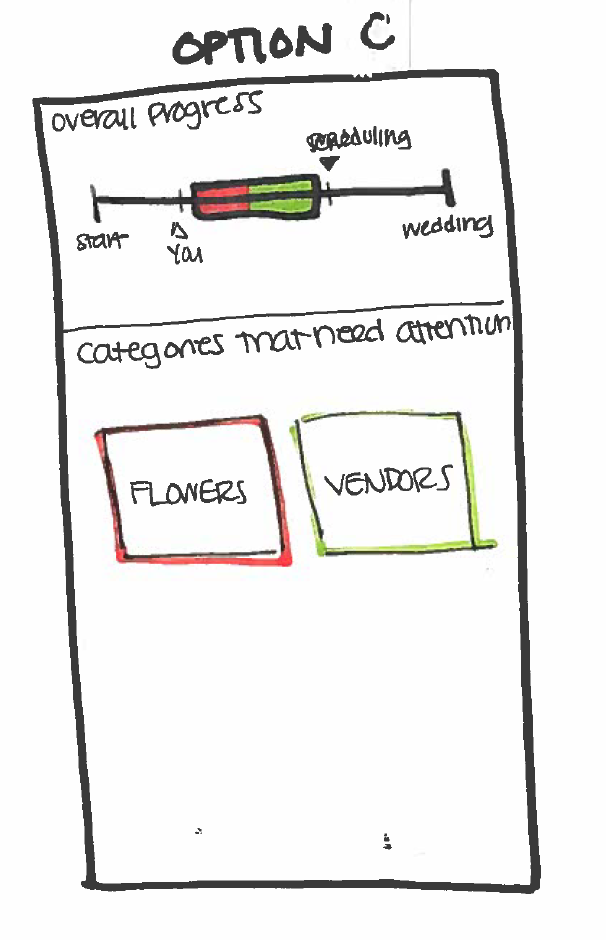 OPTION C
overall progress
scheduling
start
You
wedding
categories that need attention
FLOWERS
VENDORS